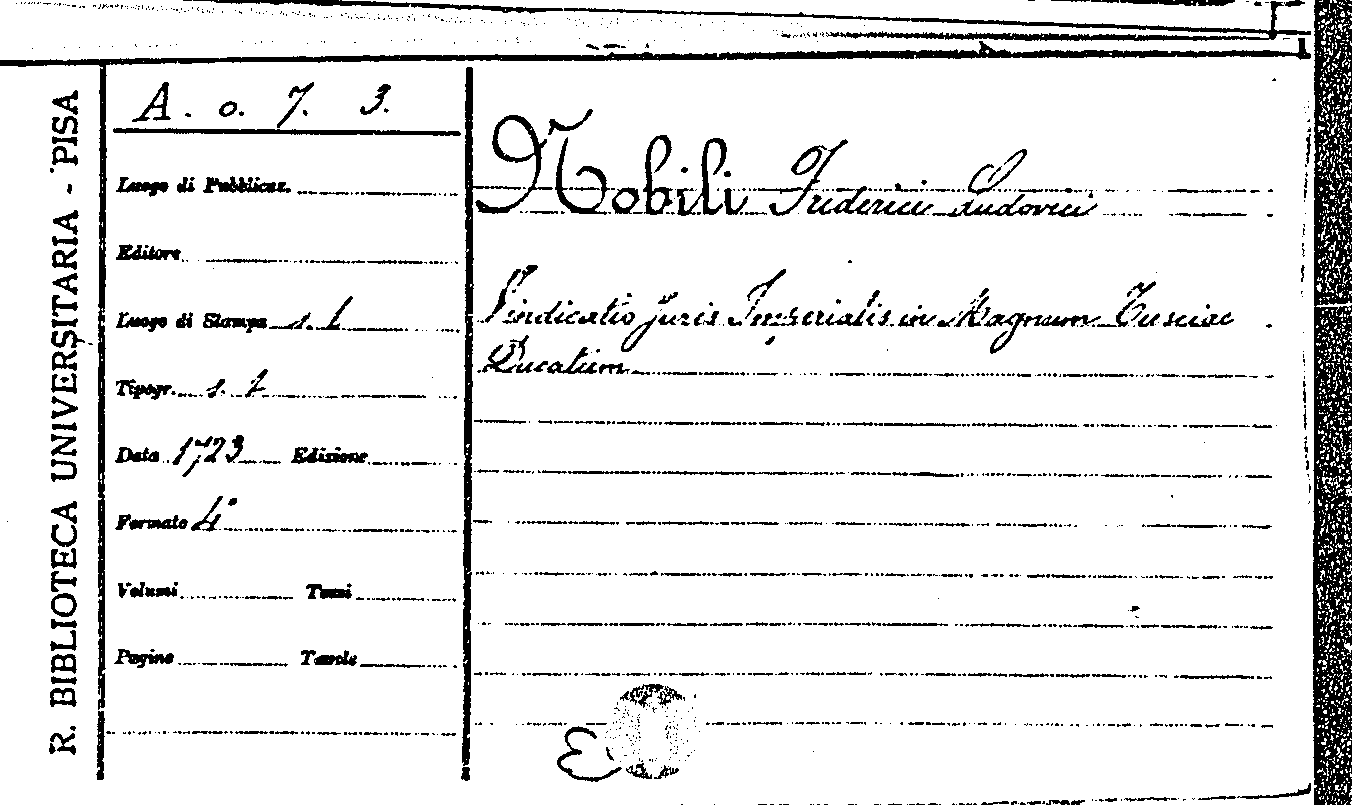 R. BIBLIOTECA UNIVERSITARIA - PISA
A. o. 7. 3.
Luogo di Pubblicaz.
Editore
Luogo di Stampa s. l
Tipogr. s. t
Data 1723 Edizione
Formato 4°
Volumi Tomi
Pagine Tavole
Nobili Frederici Ludovici
Vindicatio juris Imperialis in Magnum Tusciae
Ducatum